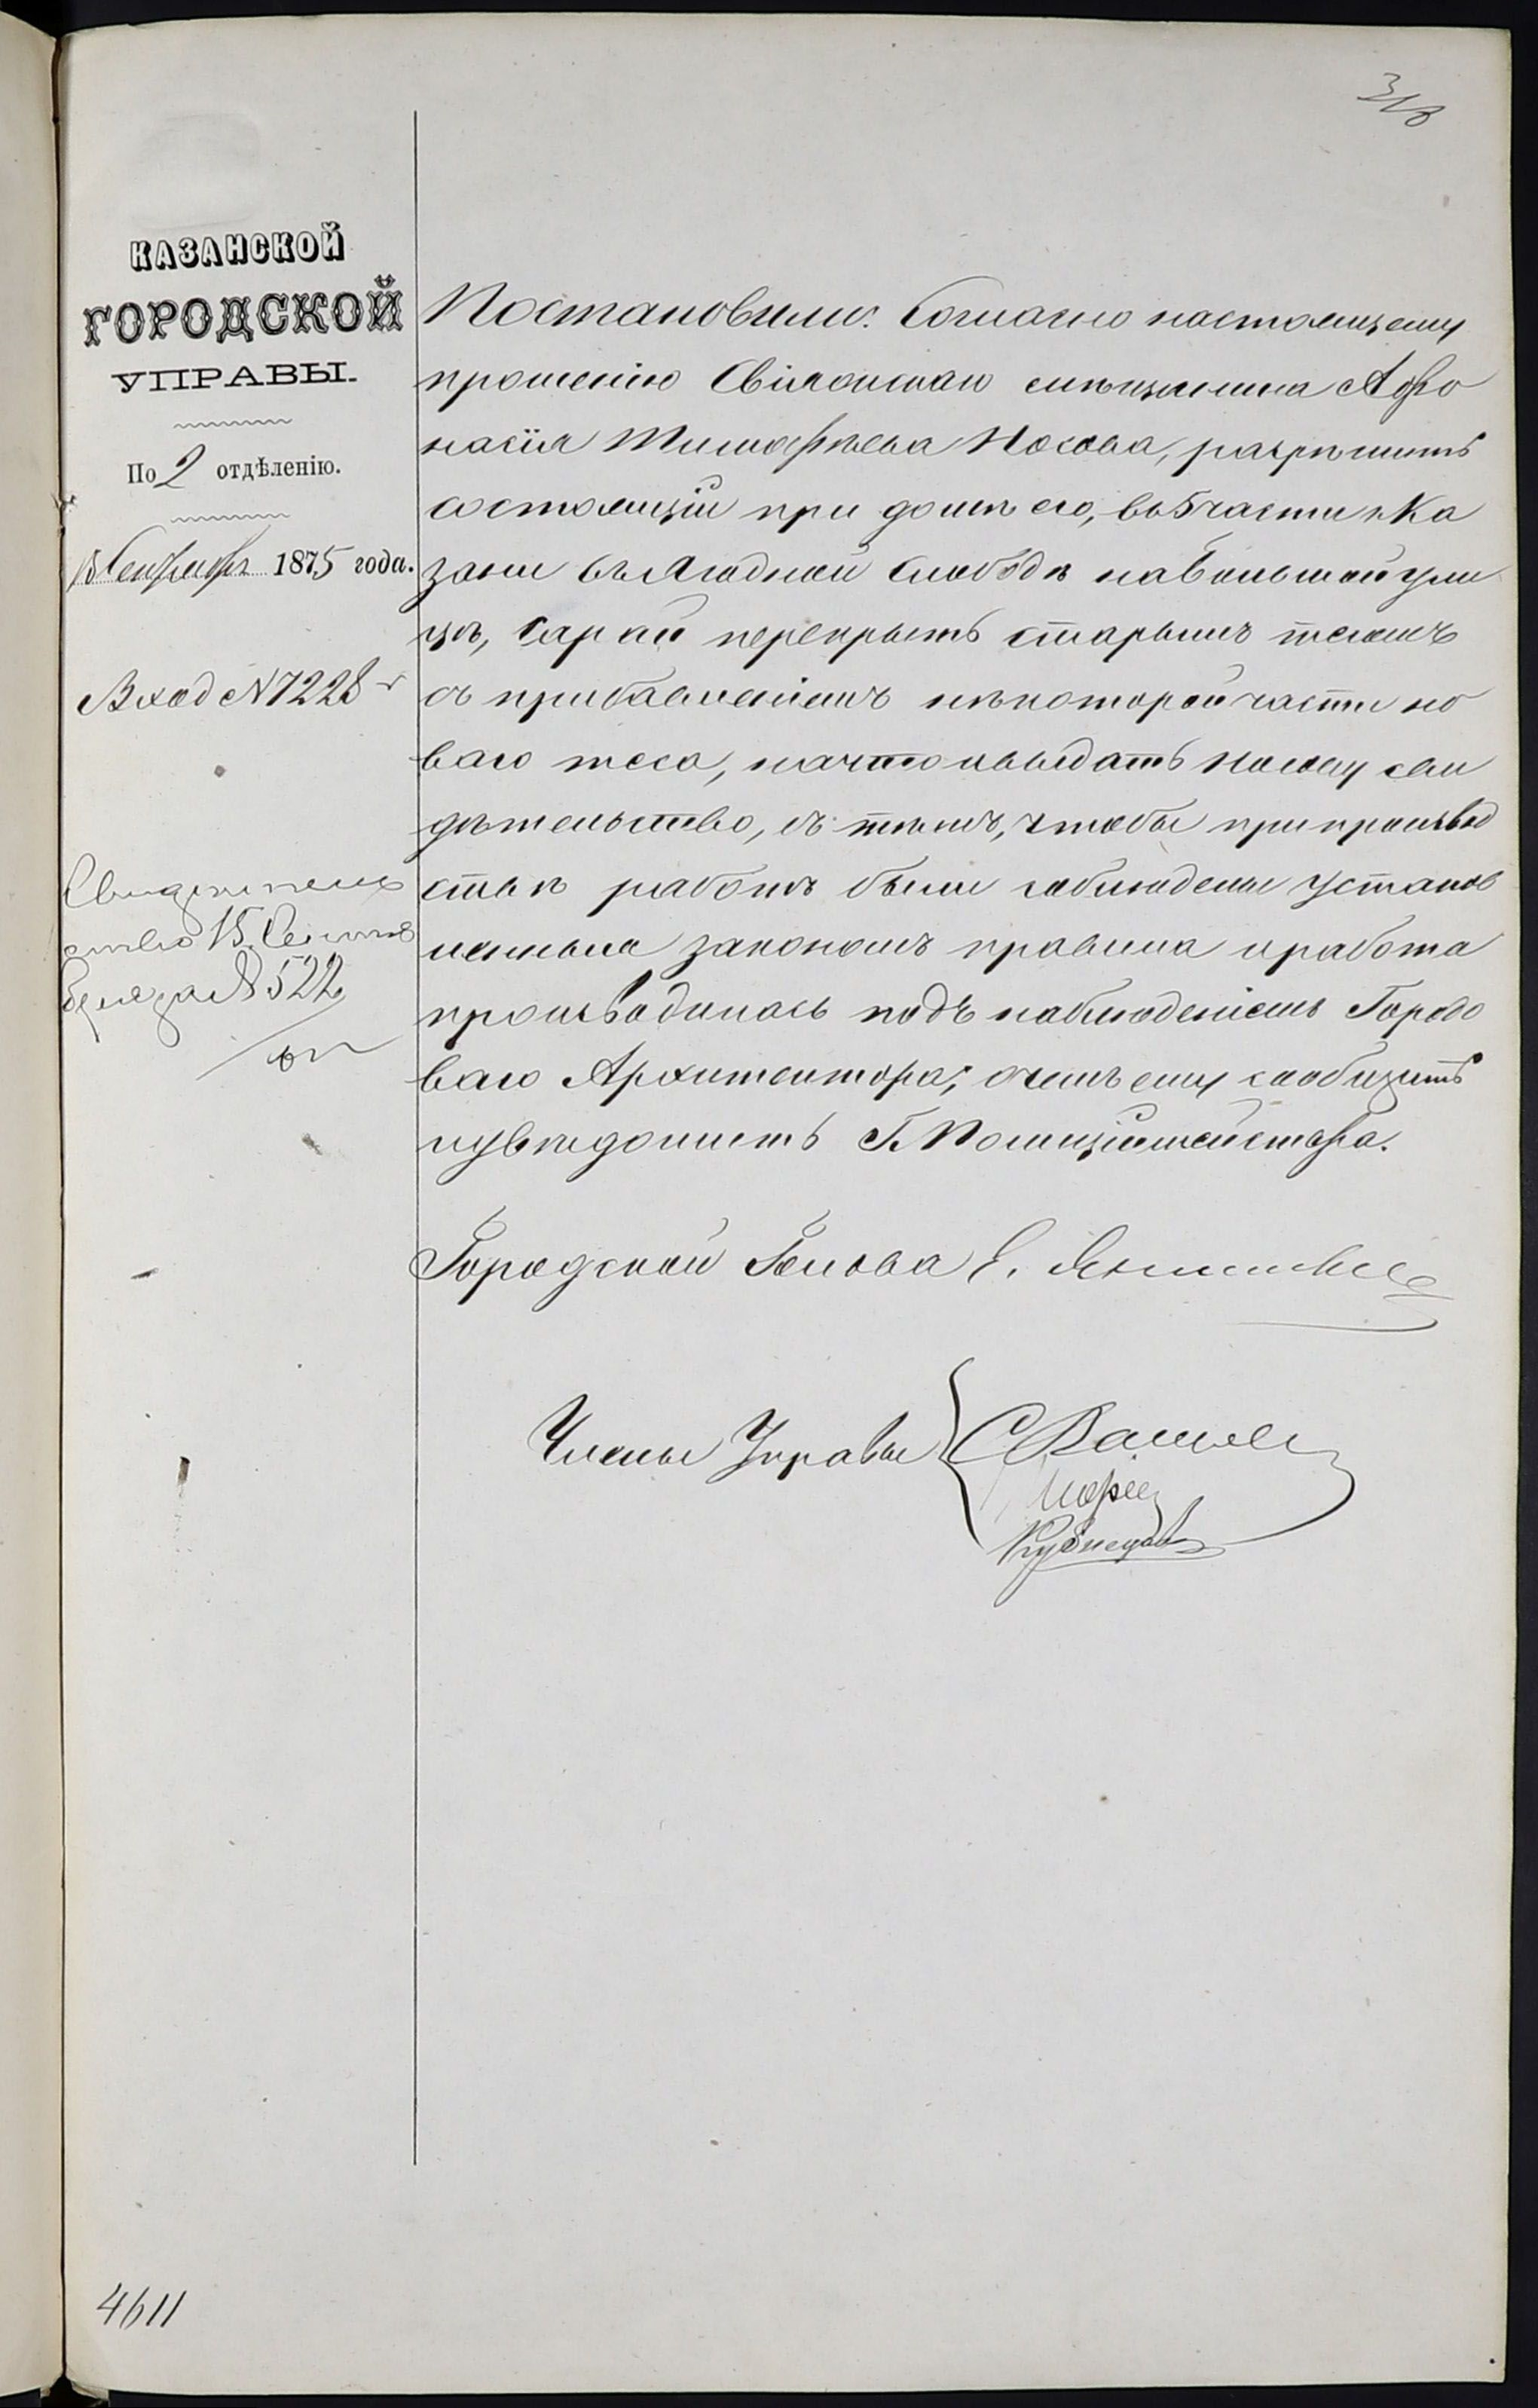 318
КАЗАНСКОЙ
ГОРОДСКОЙ
УПРАВЫ.
По 2 отдѣленію.
Сентября 1875 года.
Вход № 7228
Свидѣтель
ство 15 Сентяб
ря за № 522
Постановили: Согласно настоящему
прошенію Свіяжскаго мѣщанина Афо
насія Тимофѣева Носова, разрѣшить
состоящій при домѣ его, въ 5 части г. Ка
зани въ Ягодной слободѣ на Большой ули
цѣ, сарай перекрыть старымъ тесомъ
съ прибавленіемъ нѣкоторой части но
ваго теса, на что и выдать Носову сви
дѣтельство, съ тѣмъ, чтобы при производ
ствѣ работъ были соблюдены установ
ленныя закономъ правила и работа
производилась подъ наблюденіемъ Городо
ваго Архитектора, о чемъ ему сообщить
и увѣдомить Г. Полиціймейстера.
Городской Голова Е.
Члены Управы
Кузнецовъ
4611